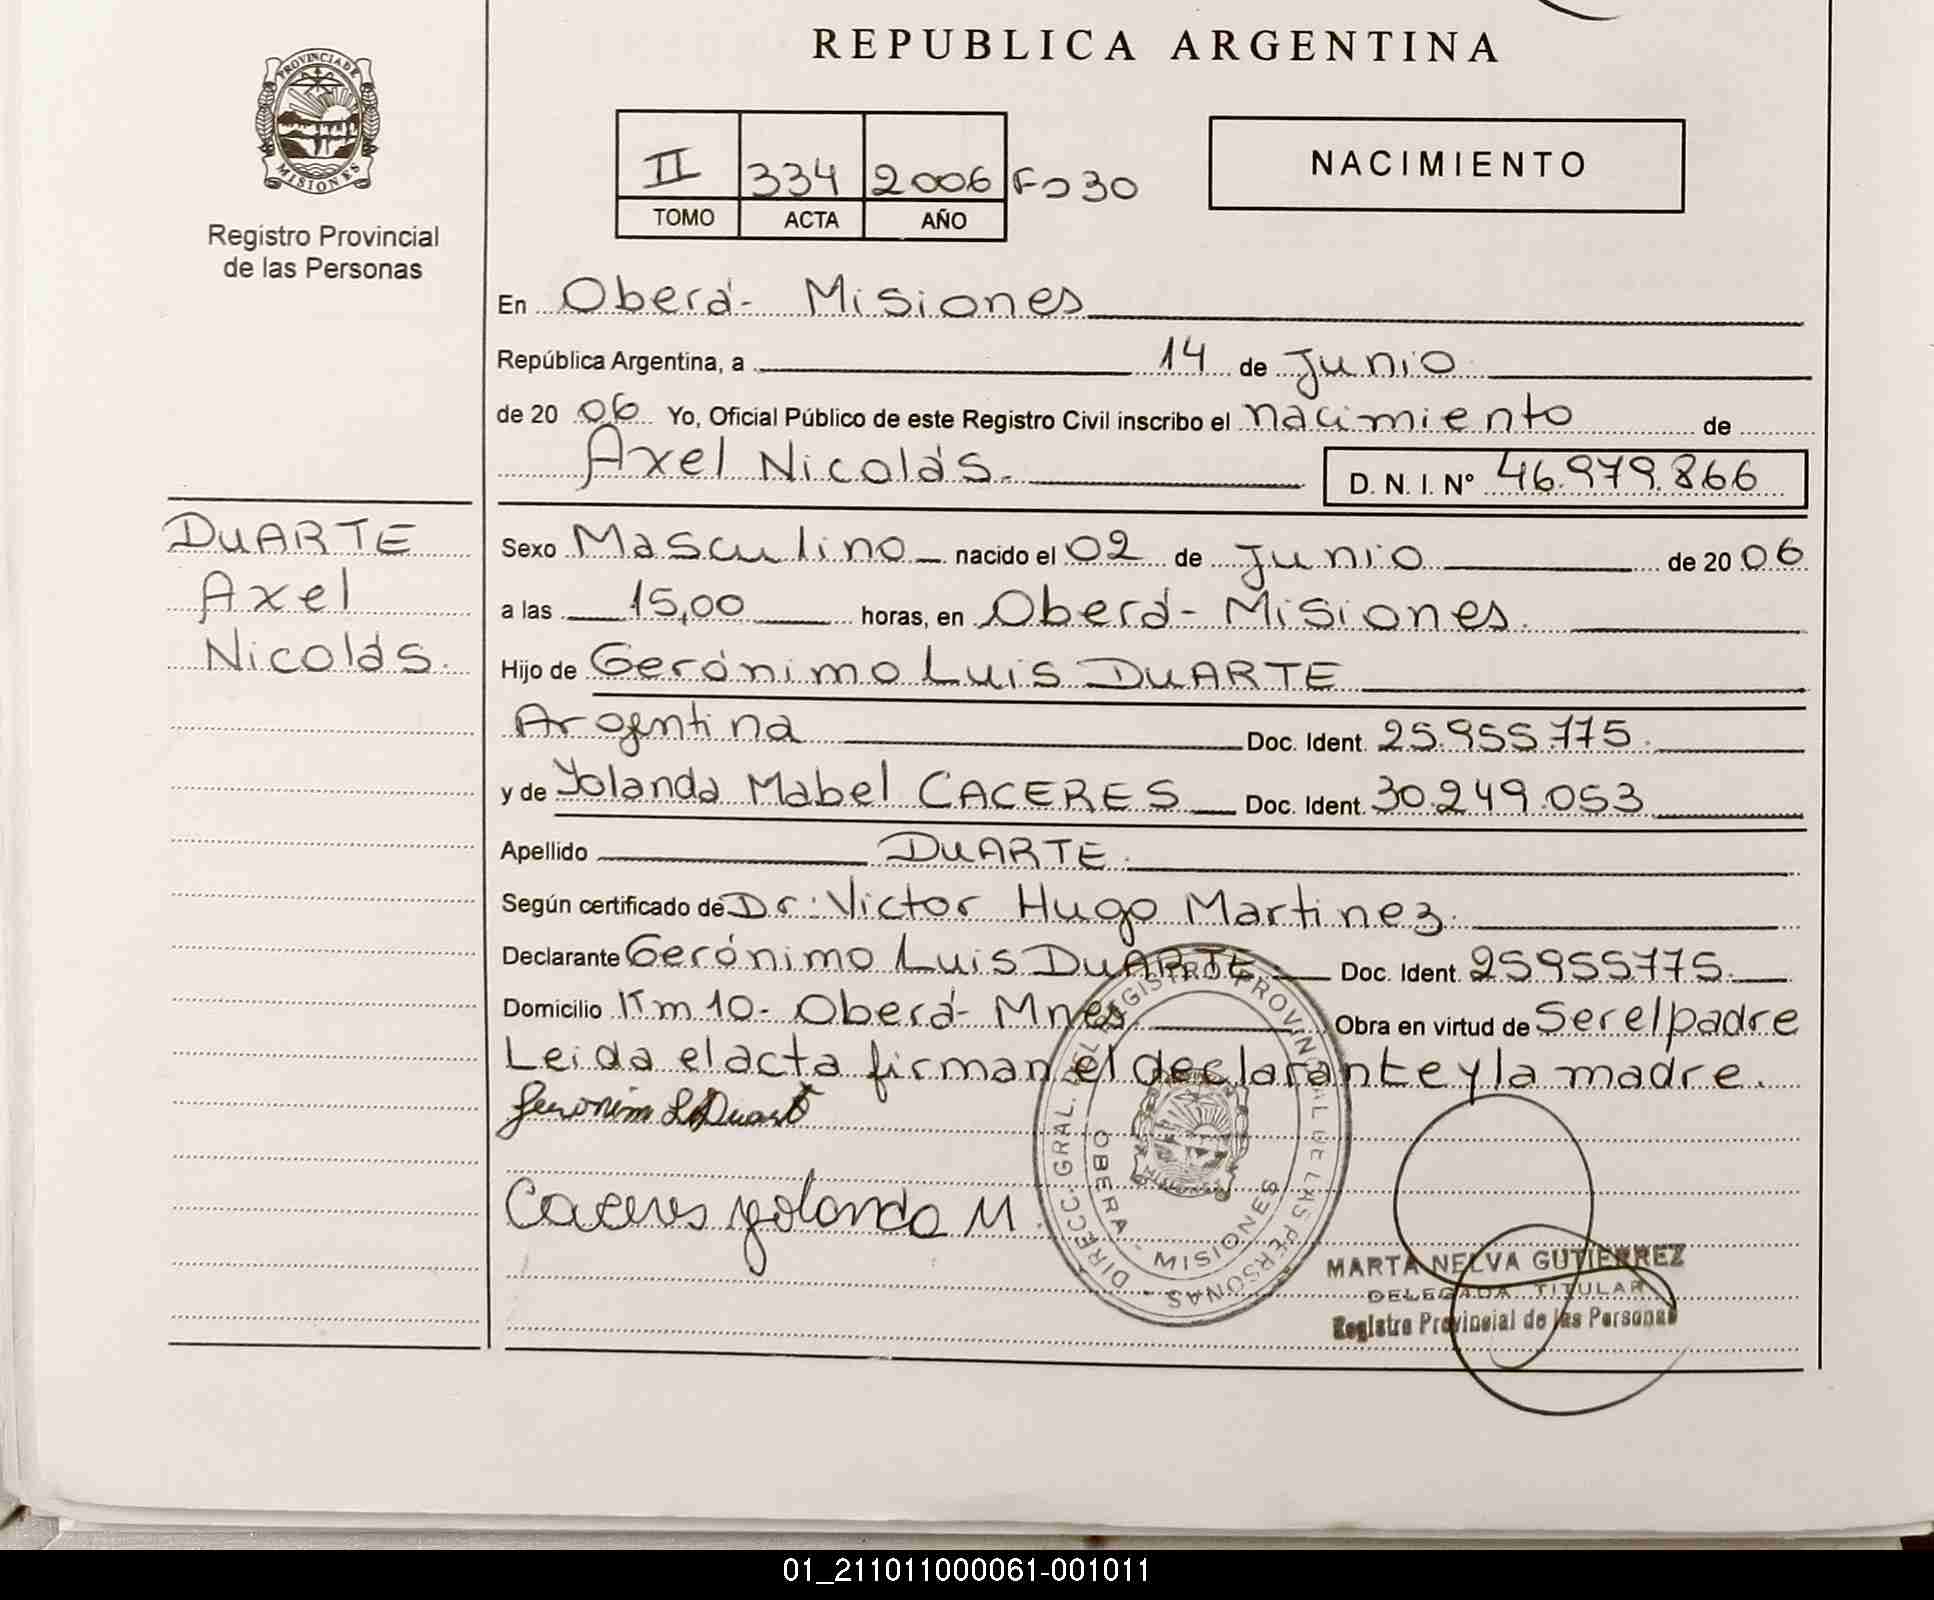 REPUBLICA ARGENTINA
PROVINCIA DE MISIONES
Registro Provincial
de las Personas
II 334 2006 Fº 30
TOMO ACTA AÑO
NACIMIENTO
En Oberá- Misiones
República Argentina, a 14 de Junio
de 20 06 Yo, Oficial Público de este Registro Civil inscribo el nacimiento de
Axel Nicolás. D. N. I. Nº 46.979.866
DUARTE
Axel
Nicolás.
Sexo Masculino nacido el 02 de Junio de 20 06
a las 15,00 horas, en Oberá- Misiones.
Hijo de Gerónimo Luis DUARTE
Argentina Doc. Ident. 25.955.775.
y de Yolanda Mabel CACERES Doc. Ident. 30.249.053
Apellido DUARTE.
Según certificado de Dr. Victor Hugo Martinez.
Declarante Gerónimo Luis DUARTE. Doc. Ident. 25955775.
Domicilio Km 10- Oberá- Mnes. Obra en virtud de Ser el padre
Leida el acta firman el declarante y la madre.
Geronim L Duart
Caceres yolanda M.
DIRECC. GRAL. DEL REGISTRO PROVINCIAL DE LAS PERSONAS
OBERA - MISIONES
MARTA NELVA GUTIERREZ
DELEGADA TITULAR
Registro Provincial de las Personas
01_211011000061-001011